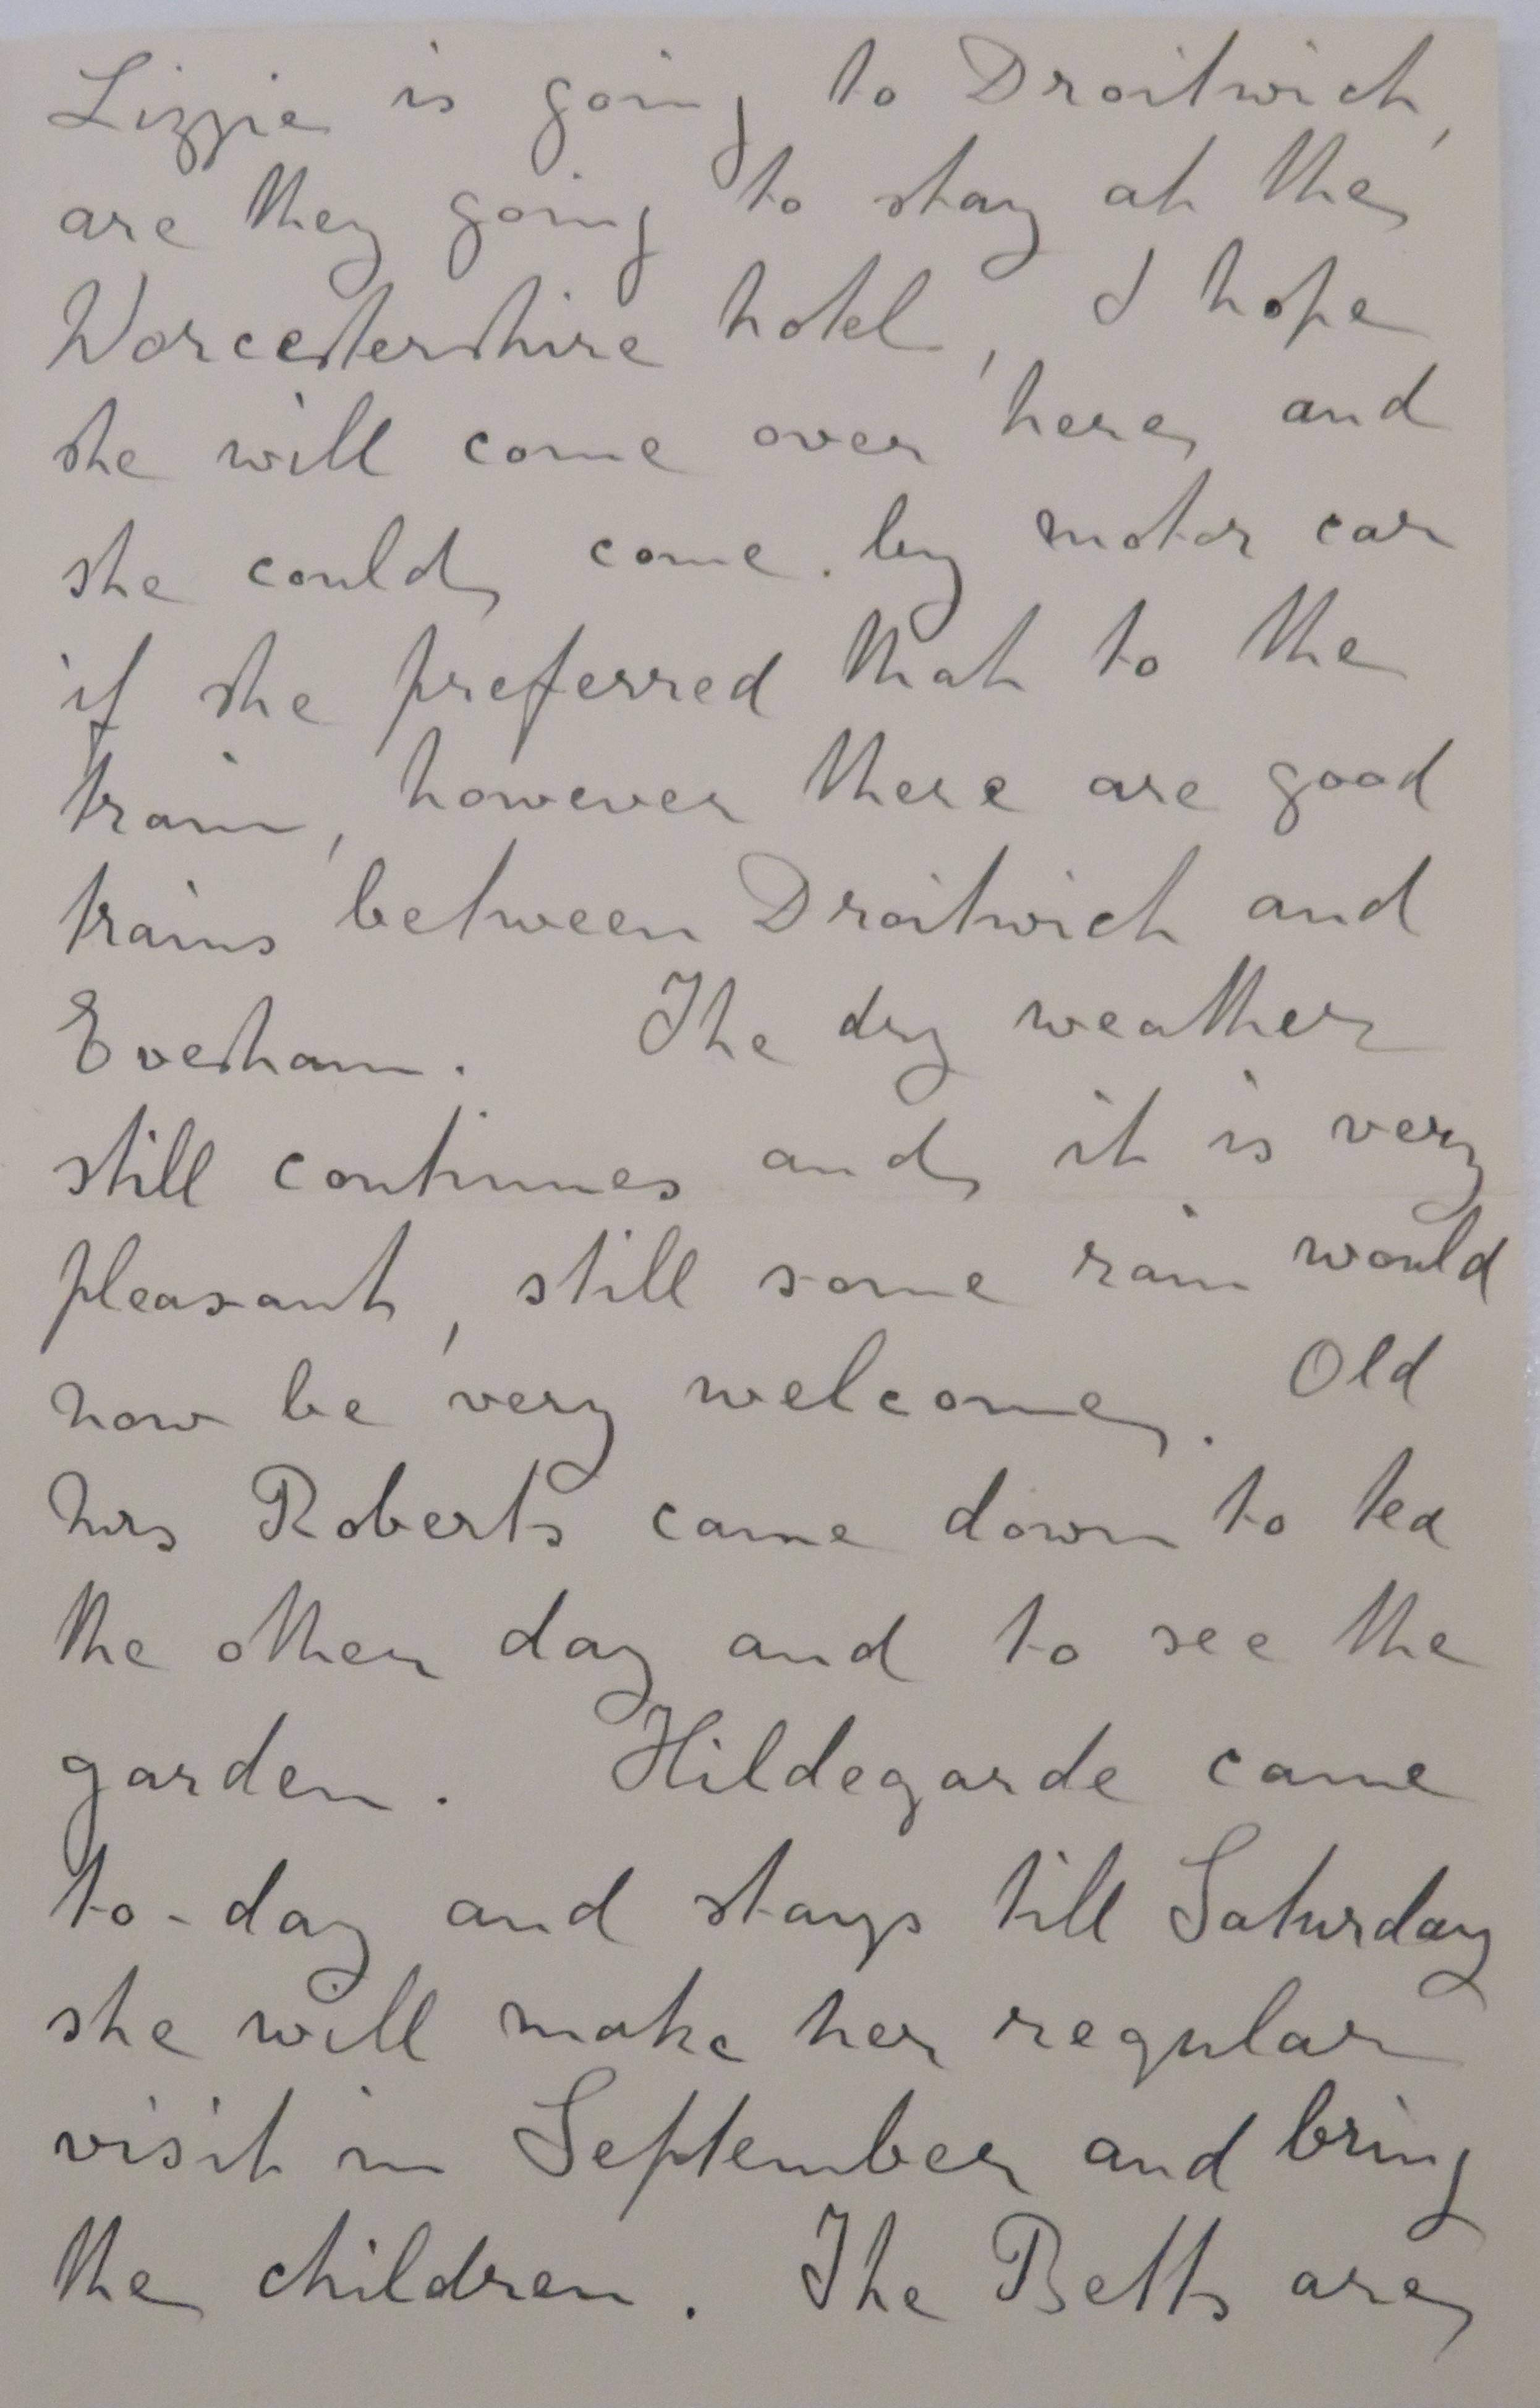 Lizzie is going to Droitwich,
are they going to stay at the
Worcestershire hotel, I hope
she will come over here and
she could come by motor car
if she preferred that to the
train, however there are good
trains between Droitwich and
Evesham. The dry weather
still continues and it is very
pleasant, still some rain would
now be very welcome. Old
Mrs Roberts came down to tea
the other day and to see the
garden. Hildegarde came
to-day and stays till Saturday
she will make her regular
visit in September and bring
the children. The Betts are